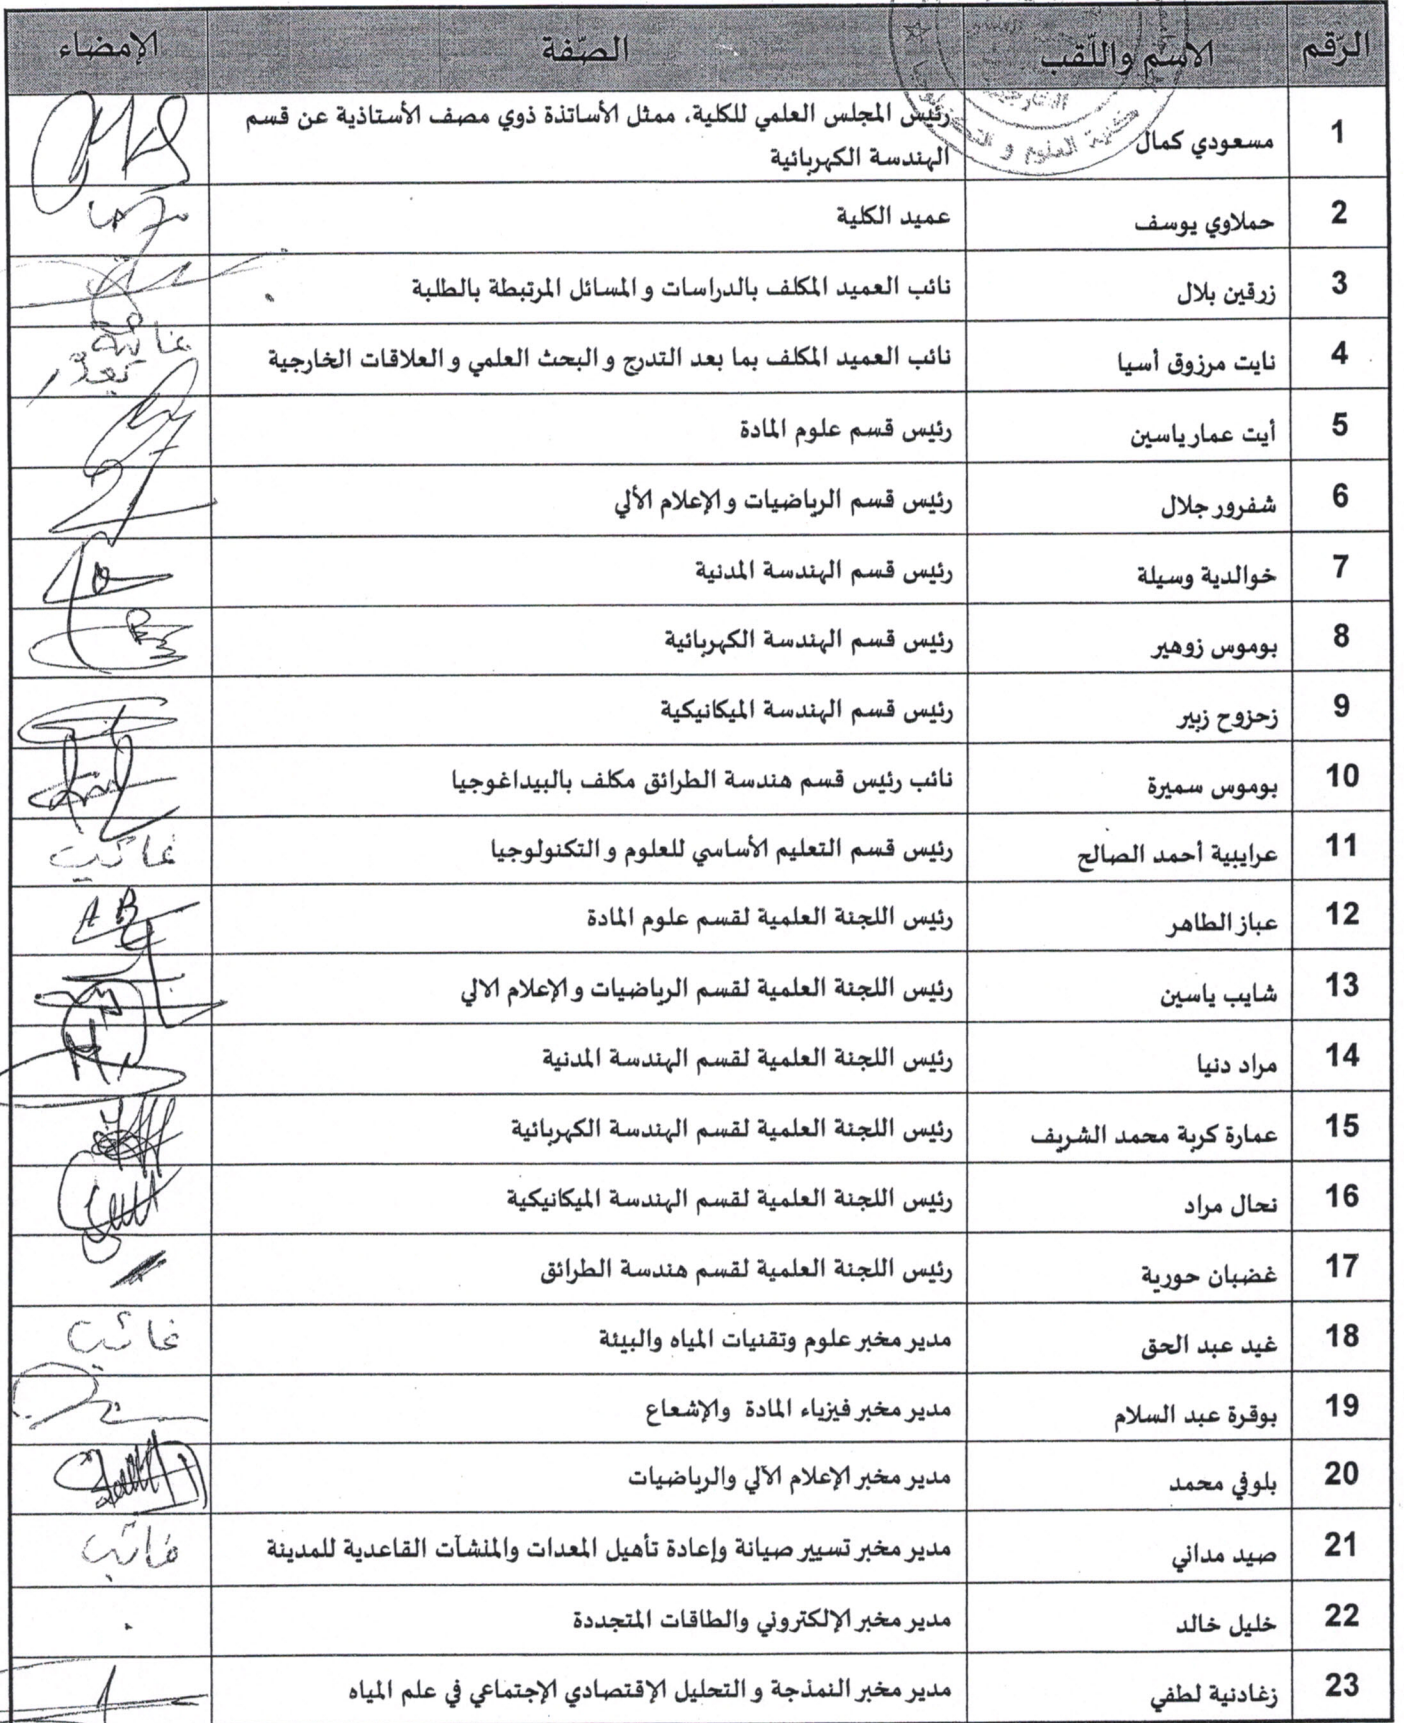 الرّقم الاسم واللّقب الصّفة الإمضاء
1 مسعودي كمال رئيس المجلس العلمي للكلية، ممثل الأساتذة ذوي مصف الأستاذية عن قسم
الهندسة الكهربائية
كلية العلوم و التكنولوجيا
2 حملاوي يوسف عميد الكلية
3 زرقين بلال نائب العميد المكلف بالدراسات و المسائل المرتبطة بالطلبة
4 نايت مرزوق أسيا نائب العميد المكلف بما بعد التدرج و البحث العلمي و العلاقات الخارجية غائبة
5 أيت عمار ياسين رئيس قسم علوم المادة
6 شفرور جلال رئيس قسم الرياضيات و الإعلام الألي
7 خوالدية وسيلة رئيس قسم الهندسة المدنية
8 بوموس زوهير رئيس قسم الهندسة الكهربائية
9 زحزوح زبير رئيس قسم الهندسة الميكانيكية
10 بوموس سميرة نائب رئيس قسم هندسة الطرائق مكلف بالبيداغوجيا
11 عرايبية أحمد الصالح رئيس قسم التعليم الأساسي للعلوم و التكنولوجيا غائب
12 عباز الطاهر رئيس اللجنة العلمية لقسم علوم المادة
13 شايب ياسين رئيس اللجنة العلمية لقسم الرياضيات و الإعلام الالي
14 مراد دنيا رئيس اللجنة العلمية لقسم الهندسة المدنية
15 عمارة كربة محمد الشريف رئيس اللجنة العلمية لقسم الهندسة الكهربائية
16 نحال مراد رئيس اللجنة العلمية لقسم الهندسة الميكانيكية
17 غضبان حورية رئيس اللجنة العلمية لقسم هندسة الطرائق
18 غيد عبد الحق مدير مخبر علوم وتقنيات المياه والبيئة غائب
19 بوقرة عبد السلام مدير مخبر فيزياء المادة والإشعاع
20 بلوفي محمد مدير مخبر الإعلام الآلي والرياضيات
21 صيد مداني مدير مخبر تسيير صيانة وإعادة تأهيل المعدات والمنشآت القاعدية للمدينة غائب
22 خليل خالد مدير مخبر الإلكتروني والطاقات المتجددة
23 زغادنية لطفي مدير مخبر النمذجة و التحليل الإقتصادي الإجتماعي في علم المياه